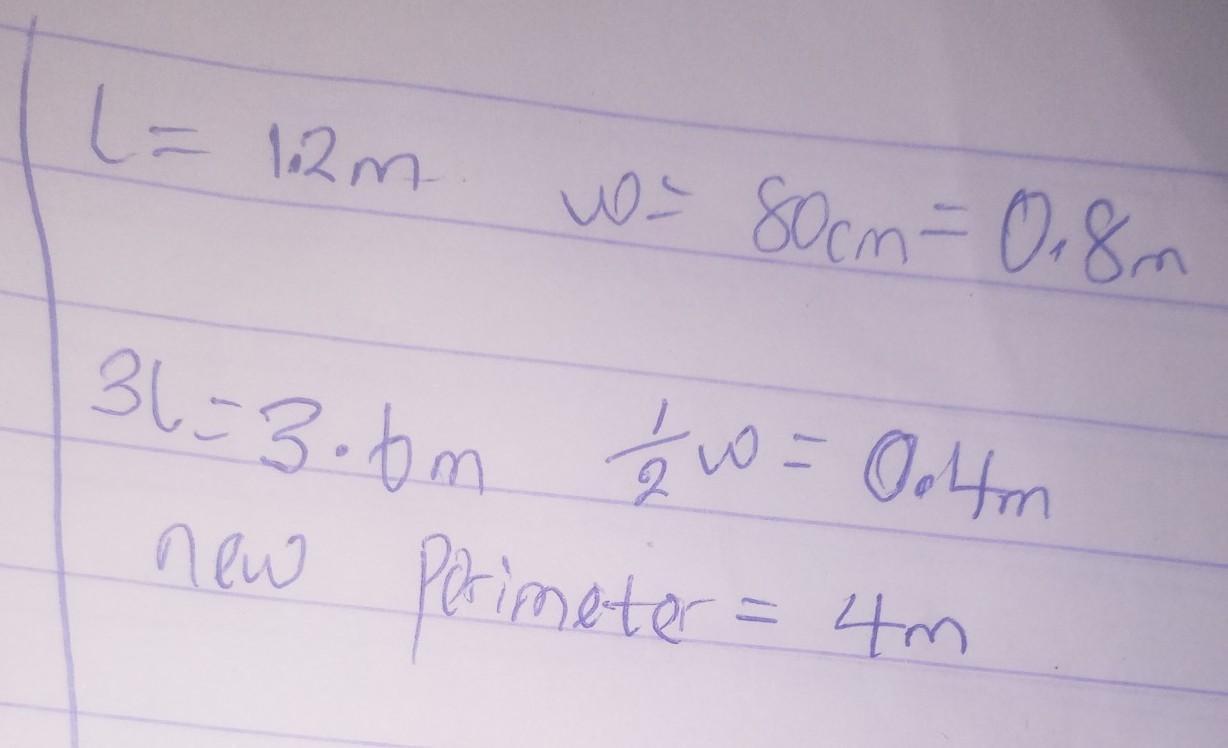 l = 1.2m w = 80cm = 0.8m
3l = 3.6m ½w = 0.4m
new perimeter = 4m